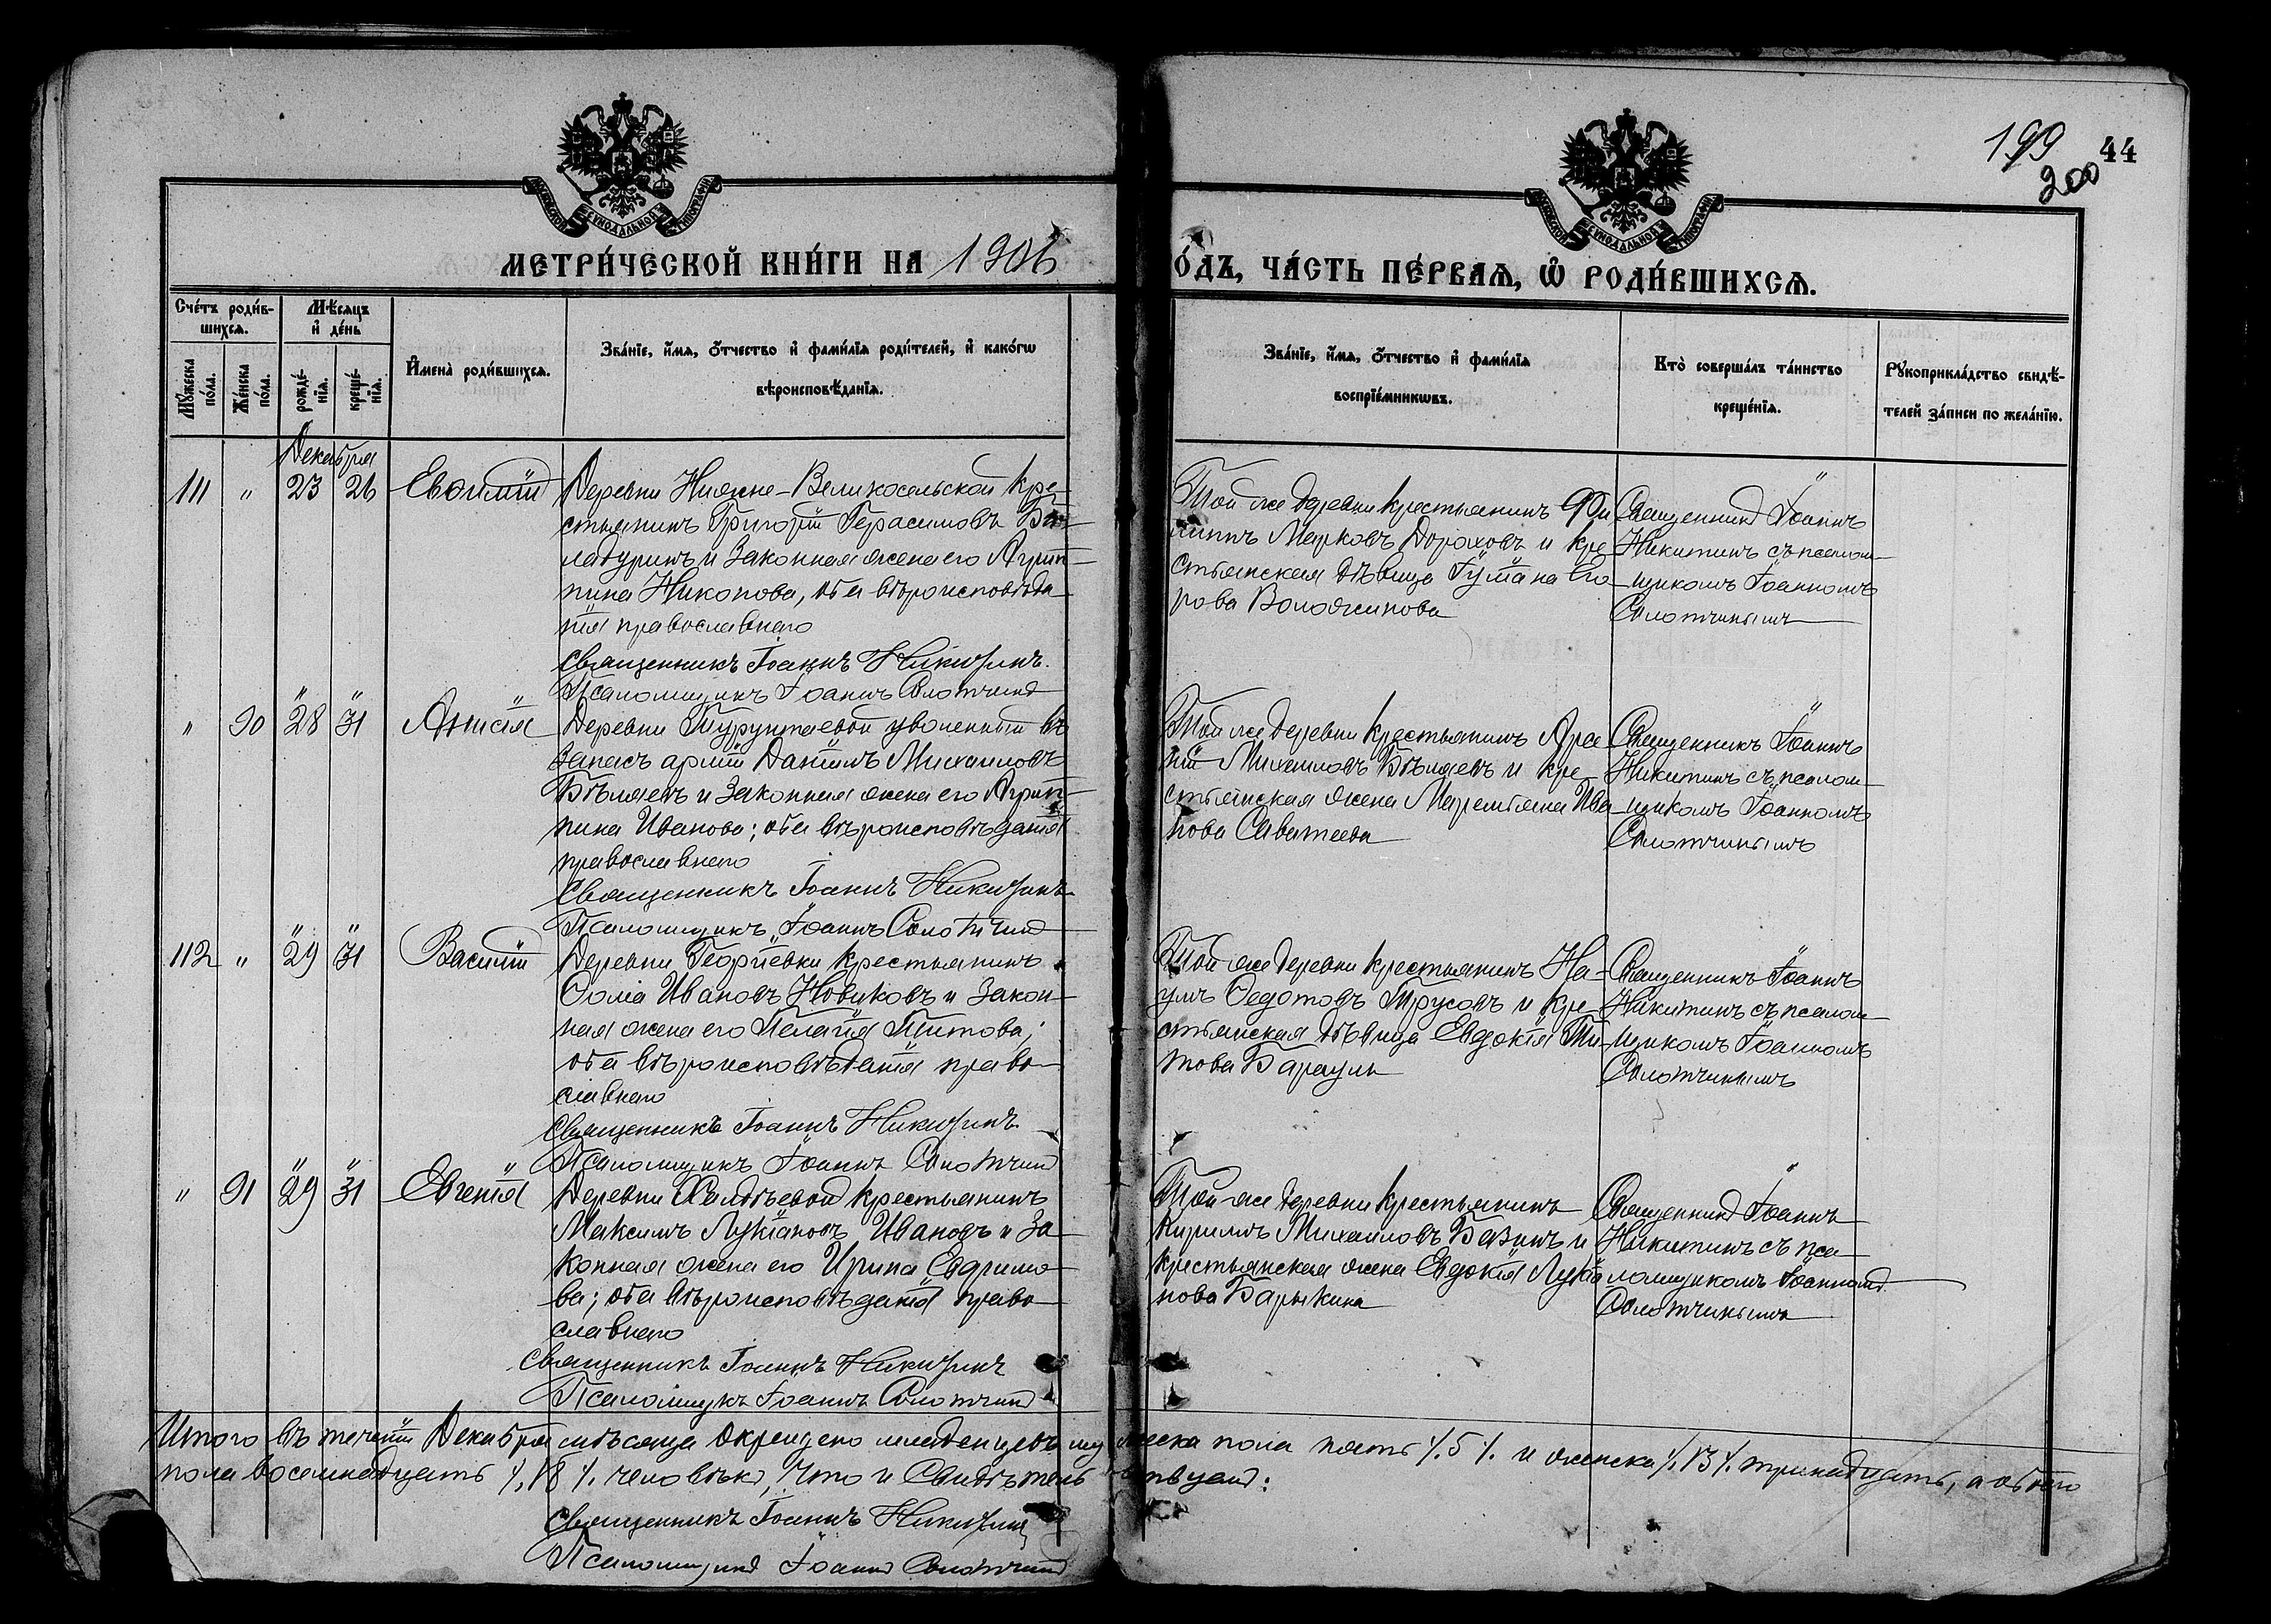 199
44
200
МОСКОВСКОЙ СѴНОДАЛЬНОЙ ТИПОГРАФІИ
МОСКОВСКОЙ СѴНОДАЛЬНОЙ ТИПОГРАФІИ
МЕТРИ́ЧЕСКОЙ КНИ́ГИ НА 1906
ОДЪ, ЧА́СТЬ ПЕ́РВАѦ, Ѡ҆ РОДИ́ВШИХСѦ.
Сче́тъ роди́в-
шихсѧ.
Мѣ́сяцъ
и҆ де́нь
Мꙋ́жеска по́ла.
Же́нска по́ла.
рожде́-нїѧ.
креще́-нїѧ.
И҆мена̀ роди́вшихсѧ.
Зва́нїе, и҆́мѧ, ѻ҆́тчество и҆ фами́лїѧ роди́телей, и҆ како́гѡ
вѣроисповѣ́данїѧ.
Зва́нїе, и҆́мѧ, ѻ҆́тчество и҆ фами́лїѧ
воспрїе́мникѡвъ.
Кто̀ соверша́лъ та́инство
креще́нїѧ.
Рꙋкоприкла́дство свидѣ́-
телей за́писи по жела́нїю.
Декабря
111 " 23 26 Евѳимій
Деревни Нижне-Великосельской кре-
стьянинъ Григорій Герасимовъ
и законная жена его Агрип-
пина Никонова, оба вѣроисповѣда-
нія православнаго
Священникъ Іоаннъ Никитинъ.
Псаломщикъ Іоаннъ Солотчинъ
Той же деревни крестьянинъ Фи-
липпъ Марковъ Дороховъ и кре-
стьянская дѣвица Іуліана Его-
рова Воложинова
Священникъ Іоаннъ
Никитинъ съ псалом-
щикомъ Іоанномъ
Солотчинымъ
" 90 28 31 Анисія
Деревни Турунтаевой уволенный въ
запасъ арміи Даніилъ Михаиловъ
Бѣляевъ и законная жена его Агрип-
пина Иванова; оба вѣроисповѣданія
православнаго
Священникъ Іоаннъ Никитинъ
Псаломщикъ Іоаннъ Солотчинъ
Той же деревни крестьянинъ
Михаиловъ Бѣляевъ и кре-
стьянская жена Маремьяна Ива-
нова Саватеева
Священникъ Іоаннъ
Никитинъ съ псалом-
щикомъ Іоанномъ
Солотчинымъ
112 " 29 31 Василій
Деревни Георгіевки крестьянинъ
Ѳома Ивановъ Новиковъ и закон-
ная жена его Пелагія Титова;
оба вѣроисповѣданія право-
славнаго
Священникъ Іоаннъ Никитинъ
Псаломщикъ Іоаннъ Солотчинъ
Той же деревни крестьянинъ На-
умъ Ѳедотовъ Трусовъ и кре-
стьянская дѣвица Евдокія Ти-
това
Священникъ Іоаннъ
Никитинъ съ псалом-
щикомъ Іоанномъ
Солотчинымъ
" 91 29 31 Евгенія
Деревни Халдѣевой крестьянинъ
Максимъ Лукіановъ Ивановъ и за-
конная жена его Ирина
оба вѣроисповѣданія право-
славнаго
Священникъ Іоаннъ Никитинъ
Псаломщикъ Іоаннъ Солотчинъ
Той же деревни крестьянинъ
Кирилъ Михаиловъ Базинъ и
крестьянская жена Евдокія Лукія-
нова Барыкина
Священникъ Іоаннъ
Никитинъ съ пса-
ломщикомъ Іоанномъ
Солотчинымъ
Итого въ теченіи Декабря мѣсяца окрещено младенцевъ мужеска пола пять ٪.5٪. и женска ٪.13٪. тринадцать, а обоего
пола восемнадцать ٪.18٪. человѣкъ, что и свидѣтельствуемъ:
Священникъ Іоаннъ Никитинъ
Псаломщикъ Іоаннъ Солотчинъ